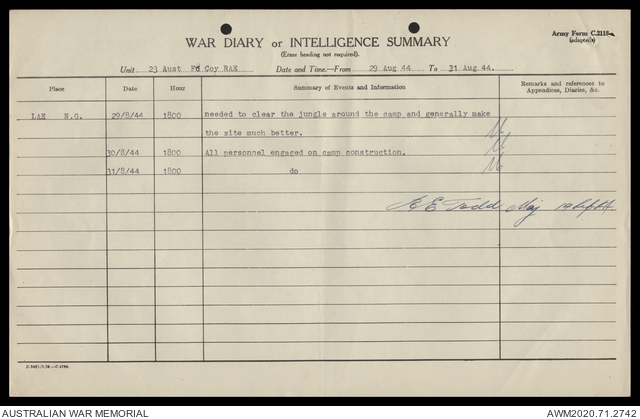 Army Form C.2118
(adapted)
WAR DIARY or INTELLIGENCE SUMMARY
(Erase heading not required).
Unit 23 Aust Fd Coy RAE Date and Time.—From 29 Aug 44 To 31 Aug 44.
Place Date Hour Summary of Events and Information Remarks and references to Appendices, Diaries, &c.
LAE N.G. 29/8/44 1800 needed to clear the jungle around the camp and generally make
the site much better.
30/8/44 1800 All personnel engaged on camp construction.
31/8/44 1800 do
E Todd Maj
AUSTRALIAN WAR MEMORIAL AWM2020.71.2742